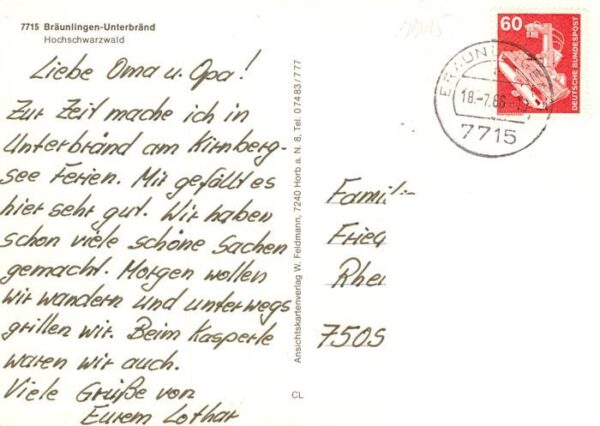 7715 Bräunlingen-Unterbränd
Hochschwarzwald
Liebe Oma u. Opa!
Zur Zeit mache ich in
Unterbränd am Kirnberg-
see Ferien. Mir gefällt es
hier sehr gut. Wir haben
schon viele schöne Sachen
gemacht. Morgen wollen
wir wandern und unterwegs
grillen wir. Beim Kasperle
waren wir auch.
Viele Grüße von
Eurem Lothar
Ansichtskartenverlag W. Feldmann, 7240 Horb a. N. 8, Tel. 07483/777
CL
60
DEUTSCHE BUNDESPOST
18.-7.86
7715
Famil
Frieg
Rhe
7505